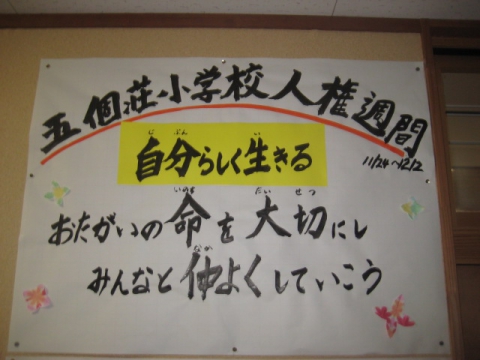 五個荘小学校人権週間
11/24~12/2
自分らしく生きる
おたがいの命を大切にし
みんなと仲よくしていこう